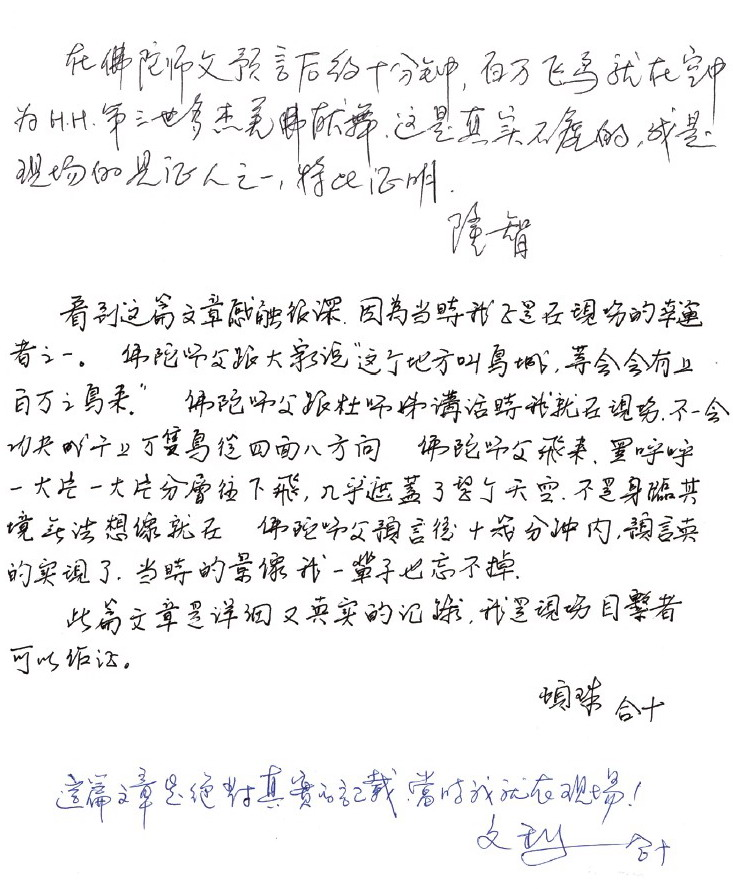 在佛陀师父预言后约十分钟，百万飞鸟就在空中
为H.H.第三世多杰羌佛献舞.这是真实不虚的,我是
现场的见证人之一,特此证明.
隆智
看到这篇文章感触很深.因為当時我正是在現場的幸運
者之一。佛陀师父跟大家说"这个地方叫鳥城,等会会有上
百万之鳥来."佛陀师父跟杜师姊講话時我就在現场.不一会
功夫成千上万隻鳥從四面八方向 佛陀师父飛来.黑呼呼
一大片一大片分層往下飛,几乎遮蓋了整个天空.不是身臨其
境無法想像就在 佛陀师父預言後十幾分钟内,預言真
的实現了.当時的景像我一輩子也忘不掉.
此篇文章是详细又真实的记録,我是現场目擊者
可以作证。
合十
這篇文章是絕對真實的記載,當时我就在现場!
合十